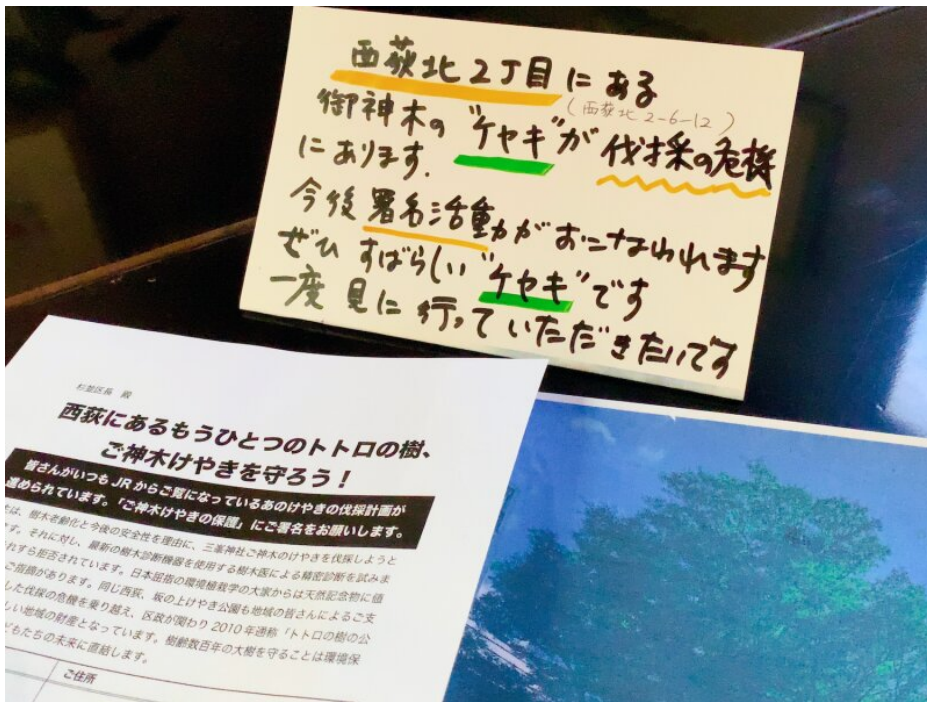 西荻北2丁目にある
(西荻北2-6-12)
御神木の"ケヤキ"が伐採の危機
にあります.
今後署名活動ががおこなわれます
ぜひすばらしい"ケヤキ"です
一度見に行っていただきたいです
杉並区長 殿
西荻にあるもうひとつのトトロの樹、
ご神木けやきを守ろう!
皆さんがいつもJRからご覧になっているあのけやきの伐採計画が
進められています。「ご神木けやきの保護」にご署名をお願いします。
は、樹木老齢化と今後の安全性を理由に、三峯神社ご神木のけやきを伐採しようと
す。それに対し、最新の樹木診断機器を使用する樹木医による精密診断を試みま
れすら拒否されています。日本屈指の環境植栽学の大家からは天然記念物に値
ご指摘があります。同じ西荻、坂の上けやき公園も地域の皆さんによるご支
した伐採の危機を乗り越え、区政が関わり2010年通称「トトロの樹の公
しい地域の財産となっています。樹齢数百年の大樹を守ることは環境保
どもたちの未来に直結します。
ご住所